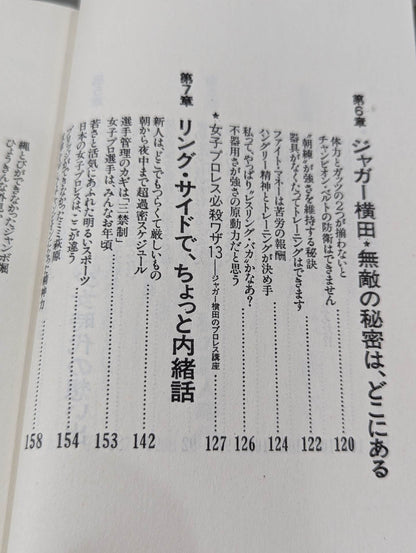 第6章 ジャガー横田★無敵の秘密は、どこにある
体力とガッツの2つが揃わないと
チャンピオン・ベルトの防衛はできません 120
“朝練”が強さを維持する秘訣
器具がなくたってトレーニングはできます 122
ファイト・マネーは苦労の報酬
ハングリー精神とトレーニングが決め手 124
私って、やっぱり“レスリング・バカ”かなあ?
不器用さが強さの原動力だと思う 126
★女子プロレス必殺ワザ13―ジャガー横田のプロレス講座 127
第7章 リング・サイドで、ちょっと内緒話
新人は、どこでもつらくて厳しいもの
朝から夜中まで超過密スケジュール 142
選手管理のカギは「三禁制」
女子プロ選手はみんなお年頃 153
若さと活気にあふれた明るいスポーツ
日本の女子プロレスは、ここが違う 154
ミミ萩原
158
縄とびができなかったジャンボ堀